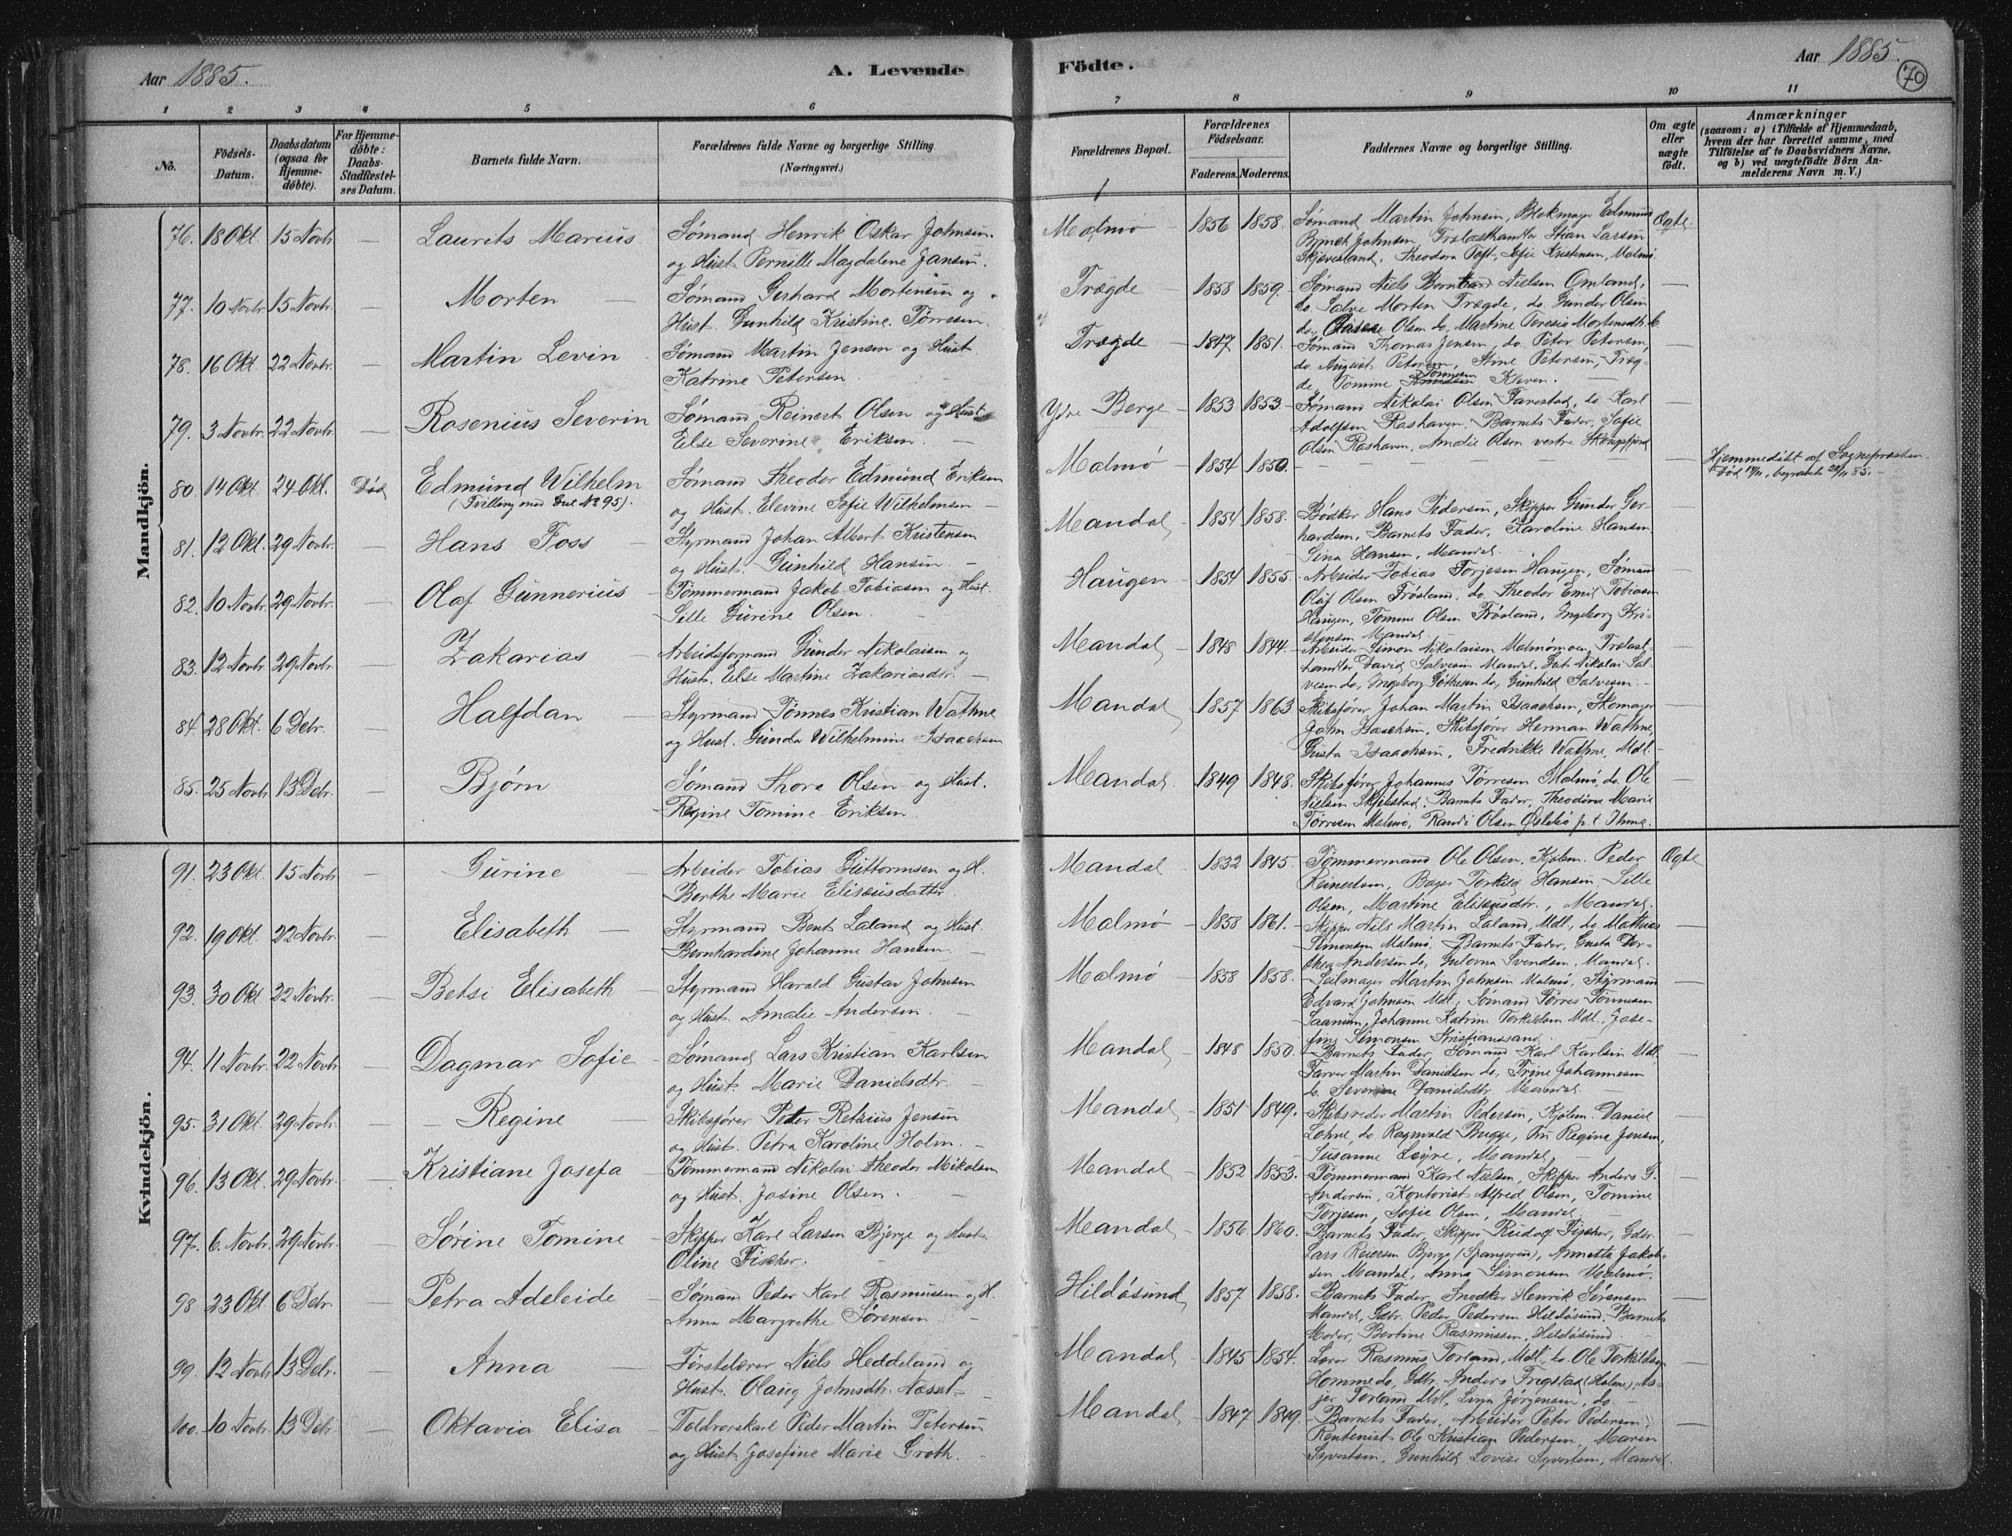 Aar 1885.
A. Levende
Födte.
Aar 1885.
70
1 2 3 4 5 6 7 8 9 10 11
No.
Födsels-Datum.
Daabsdatum (ogsaa for Hjemme-döbte).
For Hjemme-döbte: Daabs-Stadfæstel-ses Datum.
Barnets fulde Navn.
Forældrenes fulde Navne og borgerlige Stilling. (Næringsvei.)
Forældrenes Bopæl.
Forældrenes Födselsaar.
Faderens. Moderens.
Faddernes Navne og borgerlige Stilling.
Om ægte eller uægte födt.
Anmærkninger
(saasom: a) i Tilfælde af Hjemmedaab, hvem der har forrettet samme, med Tilföielse af to Daabsvidners Navne, og b) ved uægtefödte Börn An-melderens Navn m. V.)
Mandkjön.
76. 18 Okt. 15 Novbr. — Laurits Marius Sømand Henrik Oskar Johnsen Malmø 1856 1858. Sømand Martin Johnsen, Blokmager Edmund Ægte.
og Hust. Pernille Magdalene Jansen. Johnsen, Stian Larsen
Theodora Toft, Sofie Kristensen, Malmø
77. 10 Novbr. 15 Novbr. — Morten — Sømand Gerhard Mortensen og Trægde — 1858 1859. Sømand Niels Berntsen Nielsen Omland, —
Hust. Gunhild Kristine Tørresen. do. Salve Morten Trægde, do. Gunder Olsen
do. Olsen do, Martine Teresia Mortensdtr. do.
78. 16 Okt. 22 Novbr. — Martin Levin Sømand Martin Jensen og Hust Trægde — 1847 1851. Sømand Thomas Jensen, do. Peter Petersen, —
Katrine Petersen. do. August Petersen, Stine Petersen, Træg-
de, Tomine Kleven. —
79. 3 Novbr. 22 Novbr. — Rosenius Severin Sømand Reinert Olsen og Hust. Ydre Berge — 1853 1853 Sømand Nikolai Olsen Farestad, do Karl —
Else Severine Eriksen. — Adolfsen Roshaven, Barnets Fader, Sofie
Olsen Roshaven, Amalie Olsen vestre Skogsfjord
80. 14 Okt. 24 Okt. Død Edmund Wilhelm Sømand Theodor Edmund Eriksen Malmø 1854 1850. — — — Hjemmedøbt af Sognepræsten.
(Tvilling med Hust No 95). og Hust. Elevine Sofie Wilhelmsen — Død begravet 85. —
81. 12 Okt. 29 Novbr. — Hans Foss — Styrmand Johan Albert Kristensen Mandal 1854 1858. Bødker Hans Pedersen, Skipper Gunder Ger- —
og Hust. Gunhild Hansen. — hardsen, Barnets Fader, Karoline Hansen
Lina Hansen, Mandal.
82. 10 Novbr. 29 Novbr. — Olaf Gunnerius — Tømmermand Jakob Tobiasen og Hust. Haugen — 1854 1855. Arbeider Tobias Torjesen Haugen, Sømand —
Sille Gurine Olsen — Oluf Olsen Frøsland, do. Theodor Emil Tobiasen
Haugen, Tomine Olsen Frøsland, Ingeborg Kri-
stensen Mandal.
83. 12 Novbr. 29 Novbr. — Zakarias — Arbeidsformand Gunder Nikolaisen og Mandal 1848 1844. Arbeider Simon Nikolaisen Malmømoen,
Hust. Else Martine Zakariasdtr. — David Salvesen Mandal, Nikolai Sal-
vesen do, Ingeborg do, Gunhild Salvesen. —
84. 28 Okt. 6 Debr. — Halfdan — Styrmand Tønnes Kristian Wathne Mandal 1857 1863 Skibsfører Johan Martin Isaachsen, Skomager —
og Hust. Gunda Wilhelmine Isaachsen John Isaachsen, Skibsfører Herman Wathne,
Gusta Isaachsen, Fredrikke Wathne, Mdl. —
85. 25 Novbr. 13 Debr. — Bjørn Sømand Thore Olsen og Hust. Mandal 1849 1848. Skibsfører Johannes Tørresen Malmø, do. Ole —
Regine Tomine Eriksen. Nielsen Skjebstad, Barnets Fader, Theodora Marie
Tørresen Malmø, Randi Olsen p. t. Ihme.
Kvindekjön.
91. 23 Okt. 15 Novbr. — Gurine — Arbeider Tobias Guttormsen og H. Mandal 1832 1845. Tømmermand Ole Olsen, Kjøbm. Peder Ægte
Berthe Marie Elisæusdatter. Reinertsen, Bager Torkild Hansen, Sille
Olsen, Martine Eliseusdtr., Mandal.
92. 19 Okt. 22 Novbr. — Elisabeth — Styrmand Bent Laland og Hust. Malmø 1858 1861. Skipper Nils Martin Laland, Mdl., do Mathias —
Bernhardine Johanne Hansen. — Simonsen Malmø, Barnets Fader, Gusta Dor-
thea Andersen do, Gulovna Svendsen, Mandal.
93. 30 Okt. 22 Novbr. — Betsi Elisabeth — Styrmand Harald Gustav Johnsen Malmø 1858 1858. Seilmager Martin Johnsen Malmø, Styrmand —
og Hust. Amalie Andersen. — Edvard Johnsen Mdl., Sømand Tørres Tønnesen
Saanum, Johanne Katrine Torkildsen Mdl. Jose-
fine Simonsen Kristianssand.
94. 11 Novbr. 22 Novbr. — Dagmar Sofie — Sømand Lars Kristian Karlsen Mandal 1848 1850. Barnets Fader, Sømand Karl Karlsen Mdl, —
og Hust. Marie Danielsdtr. — Farver Martin Danielsen do, Trine Johannesen
do. Severine Danielsdtr, Mandal.
95. 31 Okt. 29 Novbr. — Regine — Skibsfører Peder Retsius Jensen Mandal 1851 1849. Skibsreder Martin Pedersen, Kjøbm. Daniel —
og Hust. Petra Karoline Holm. — Lohne, do. Ragnvald Bugge, Fru Regina Jensen,
Susanne Løyre, Mandal.
96. 13 Okt. 29 Novbr. — Kristiane Josefa — Tømmermand Nikolai Theodor Mikalsen Mandal 1852 1853. Tømmermand Karl Nielsen, Skipper Anders G. —
og Hust. Josine Olsen. — Andersen, Kontorist Alfred Olsen, Tomine
Torjesen, Sofie Olsen, Mandal.
97. 6 Novbr. 29 Novbr. — Sørine Tomine — Skipper Karl Larsen Bjerge og Hust. Mandal 1856 1860. Barnets Fader, Skipper Rudolf Fischer, Gdbr. —
Oline Fischer. — Lars Reiersen Bjerge (Spangereid), Annette Jakob-
sen Mandal, Anna Simonsen Malmø.
98. 23 Okt. 6 Debr. — Petra Adeleide — Sømand Peder Karl Rasmussen og H. Hildøsund 1857 1858. Barnets Fader, Snedker Henrik Sørensen —
Anna Margrethe Sørensen. Mandal, Gdbr. Peder Pedersen Hildøsund, Barnets
Moder, Bertine Rasmussen, Hildøsund.
99. 12 Novbr. 13 Debr. — Anna — Førstelærer Niels Heddeland og Mandal 1845 1854. Lærer Rasmus Torland, Mdl., do Ole Torkildsen —
Hust. Olaug Johnsdtr. Næset — Homme do, Gdbr. Anders Frigstad (Holme), As-
jer Torland Mdl, Lina Jørgensen, do.
100. 10 Novbr. 13 Debr. — Oktavia Elisa — Toldroerskarl Peder Martin Petersen Mandal 1847 1849. Barnets Fader, Arbeider Peter Pedersen, —
og Hust Josefine Marie Groth. — Rentenist Ole Kristian Pedersen, Maren
Syvertsen, Gunhild Lovise Syvertsen, Mandal